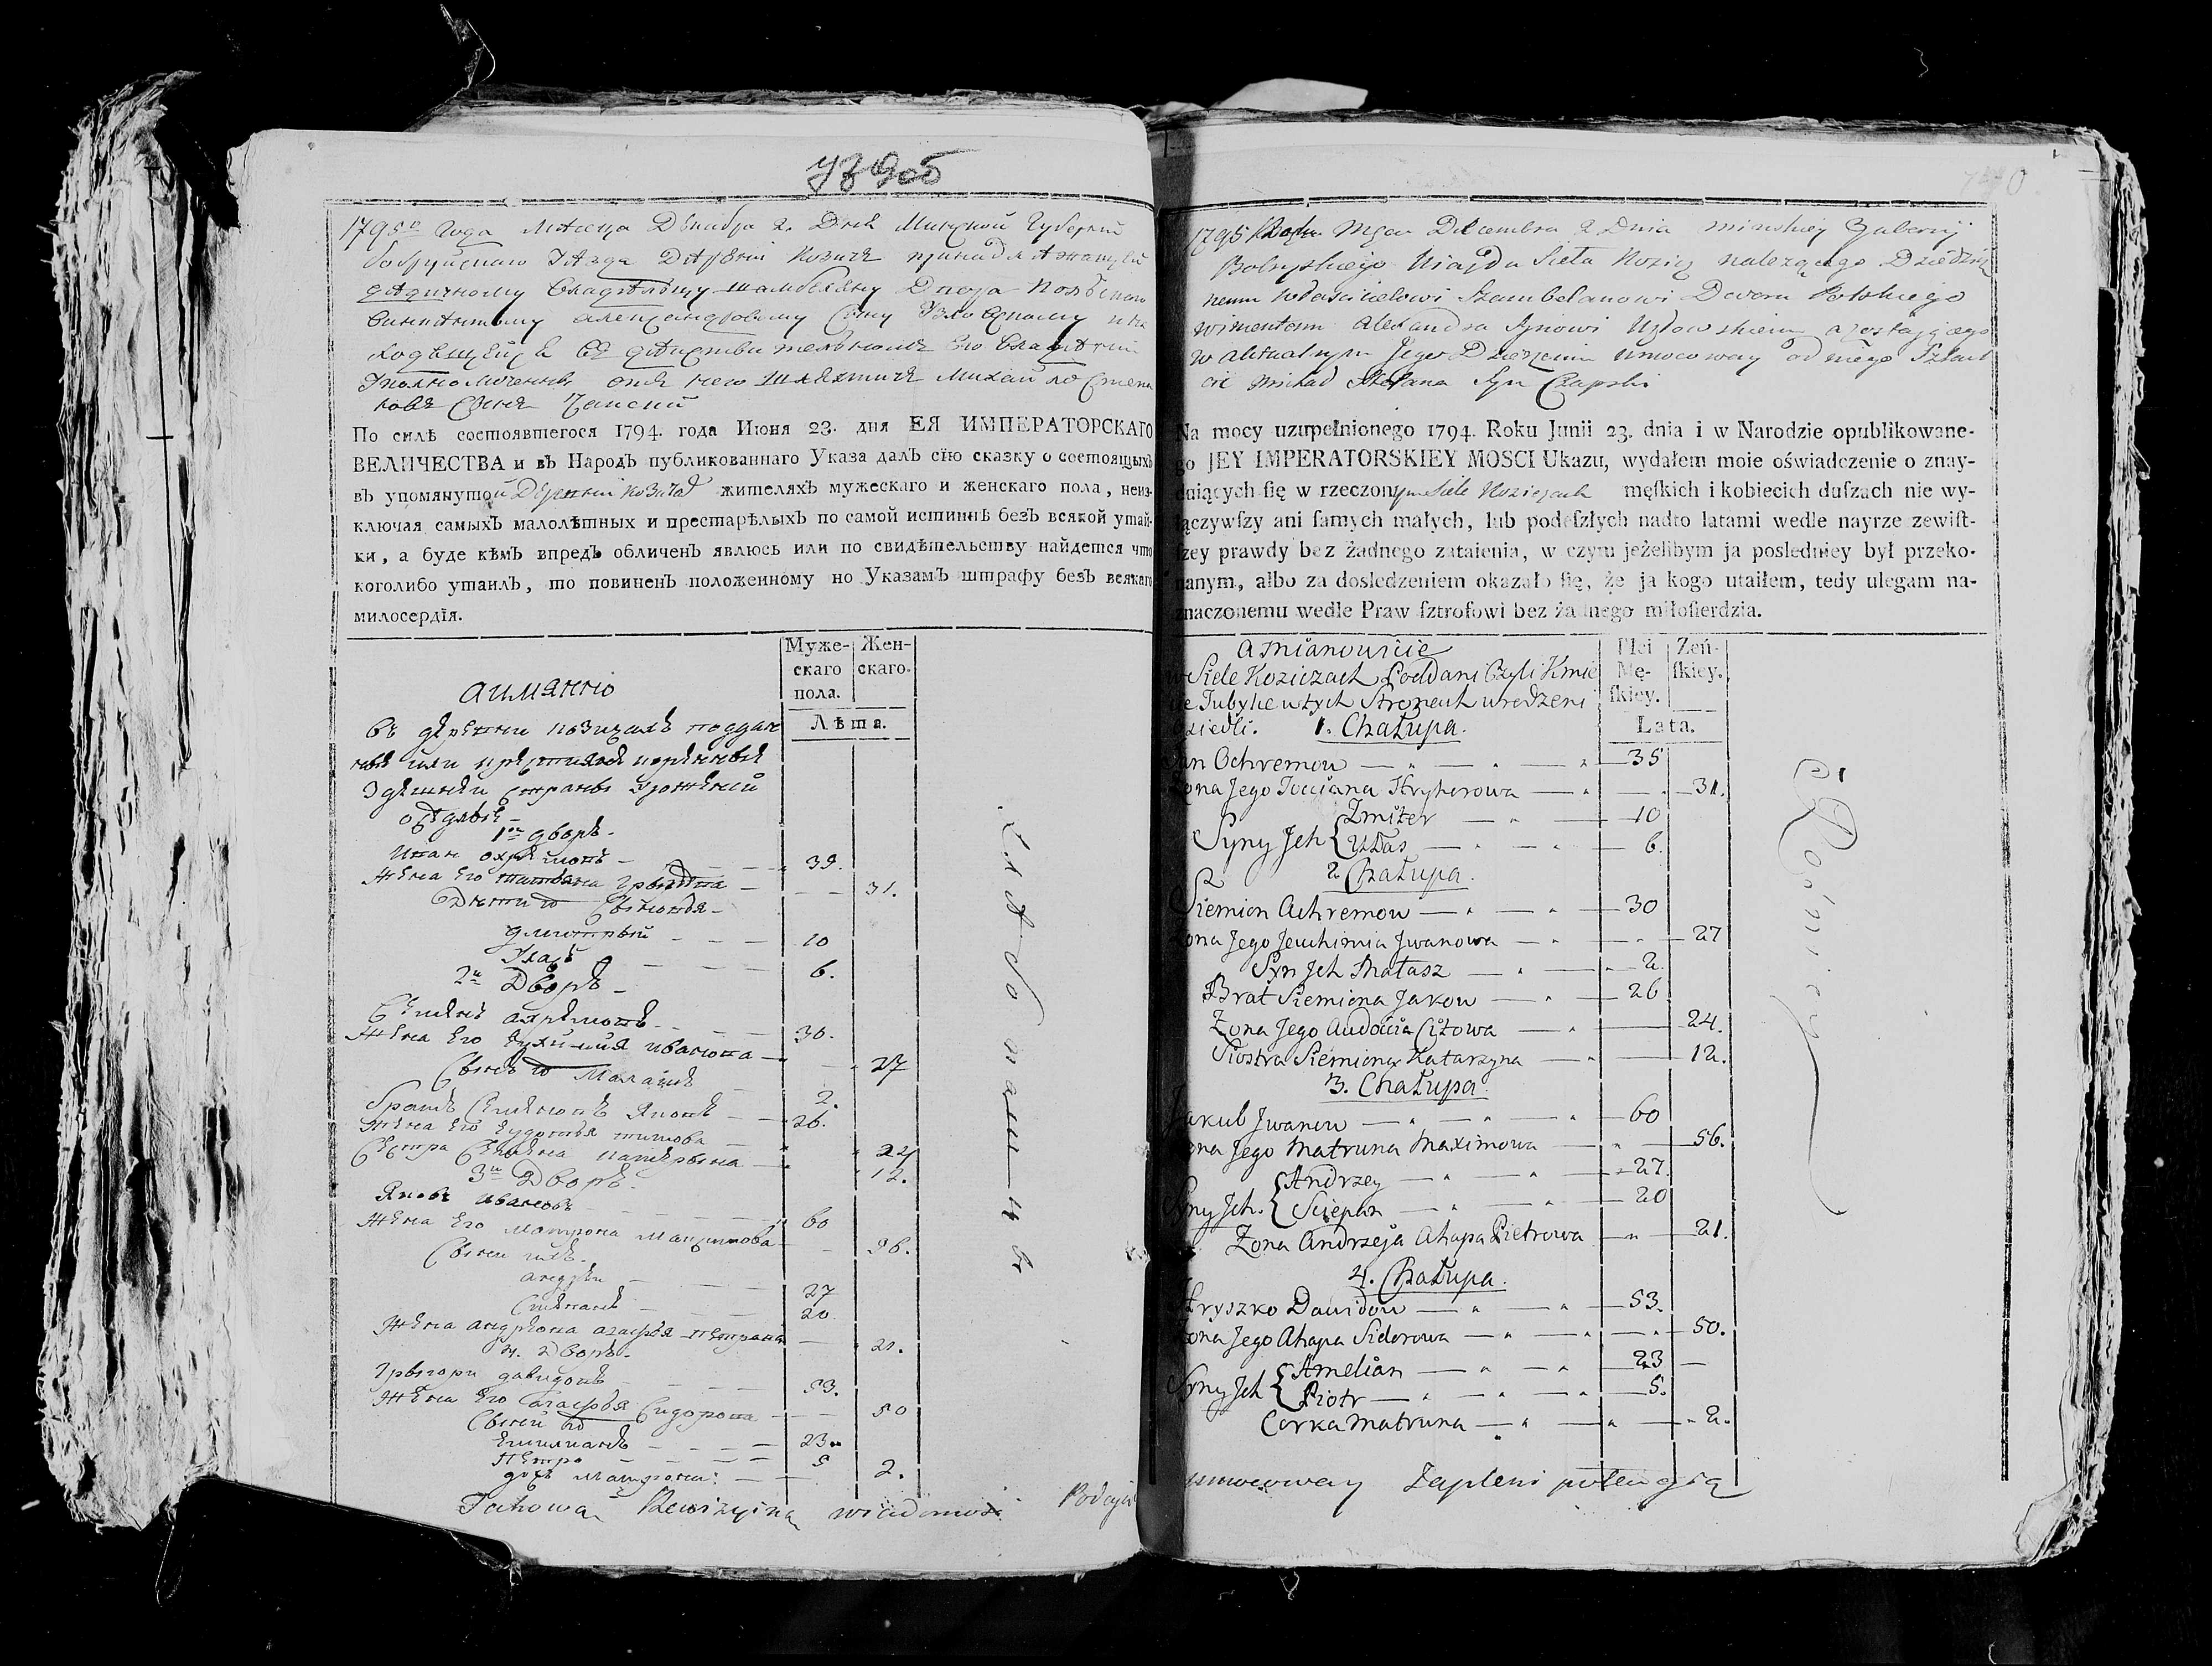 1795го Года Месяца Декабря 2. Дня Минской Губернии
Бобруйскаго Уезда Деревни Козичъ принадлежащей
дедичному Владельцу шамбеляну Двора Польскаго
Александровому Сыну
его
Уполномоченный отъ него шляхтичъ Михайло Степа
новъ Сынъ Чапский
По силѣ состоявшегося 1794. года Июня 23. дня ЕЯ ИМПЕРАТОРСКАГО
ВЕЛИЧЕСТВА и въ Народъ публикованнаго Указа далъ сїю сказку о состоящыхъ
въ упомянутой Деревни Козичахъ жителяхъ мужескаго и женскаго пола, неиз-
ключая самыхъ малолѣтныхъ и престарѣлыхъ по самой истиннѣ безъ всякой утай-
ки, а буде кѣмъ впредъ обличенъ явлюсь или по свидѣтельству найдется что
коголибо утаилъ, то повиненъ положенному по Указамъ штрафу безъ всякаго
милосердїя.
Муже-
скаго
пола.
Жен-
скаго.
Лѣта.
аимянно
въ деревни Козичахъ поддан
ные или крестьяне коренные
Здешней Страны урожений
оседлые
1й дворъ.
Иван Охремовъ 35.
Жена Его татьяна 31.
Дмитрый 10
Улас 6.
2й Дворъ
Семенъ ахремовъ 30.
Жена Его Еухимия иванова 27
Сынъ Малашъ 2.
братъ Семеновъ Яковъ 26.
Жена Его Еудокия титова 24
Сестра Семена катерына 12.
3й Дворъ.
Яковъ Ивановъ 60
Жена Его Матрона Максимова 56.
Сыни ихъ.
андрей 27
Степанъ 20
Жена андреева агафья Петрова 21.
4. Дворъ.
Грыгори давидовъ 53.
Жена Его агафья Сидорова 50
Сыни
Емилианъ 23
Петро 5
дочь Матрона: 2.
Takową Rewizyiną wiadomość Podaję
1795 Roku Mca Decembra 2 Dnia Minskiey Gubernij
Bobruyskiego Uiazdu Sieła Kozicz należącego Dziedzicz
nemu Właścicielowi Szambelanowi Dworu Polskiego
Wincentemu Alexandra Synowi Uzłowskiemu a zostaiącego
w aktualnym Jego Dzierżeniu umocowany od niego Szlach
cic Michał Stefana Syn Czapski
Na mocy uzupełnionego 1794. Roku Junii 23. dnia i w Narodzie opublikowane-
go JEY IMPERATORSKIEY MOSCI Ukazu, wydałem moie oświadczenie o znay-
duiących się w rzeczonym Siele Koziczach męſkich i kobiecich duſzach nie wy-
łączywſzy ani ſamych małych, lub podeſzłych nadto latami wedle nayrze zewiſt-
ſzey prawdy bez żadnego zataienia, w czym jeżelibym ja posledniey był przeko-
nanym, albo za dosledzeniem okazało ſię, że ja kogo utaiłem, tedy ulegam na-
znaczonemu wedle Praw ſztrofowi bez żadnego miłoſierdzia.
Płci
Mę-
ſkiey.
Zeń-
ſkiey.
Lata.
a mianowicie
w Siele Koziczach Poddani Czyli Kmie
cie Tubylce w tych Stronach urodzeni
osiedli. 1. Chałupa.
Jan Ochremow 35
Zona Jego Tacciana Hryhorowa 31.
Syny Jch { Zmiter 10
Ułas 6.
2 Chałupa.
Siemion Achremow 30
Zona Jego Jeuchimia Jwanowa 27
Syn Jch Małasz 2.
Brat Siemiona Jakow 26
Zona Jego Audocia Citowa 24.
Siostra Siemiona Katarzyna 12.
3. Chałupa.
Jakub Jwanow 60
Zona Jego Matruna Maximowa 56.
Syny Jch. { Andrzey 27.
Sciepan 20
Zona Andrzeja Ahapa Pietrowa 21.
4. Chałupa.
Hryszko Dawidow 53.
Zona Jego Ahapa Sidorowa 50.
Syny Jch { Amelian 23
Piotr 5.
Corka Matruna 2.
umocowany